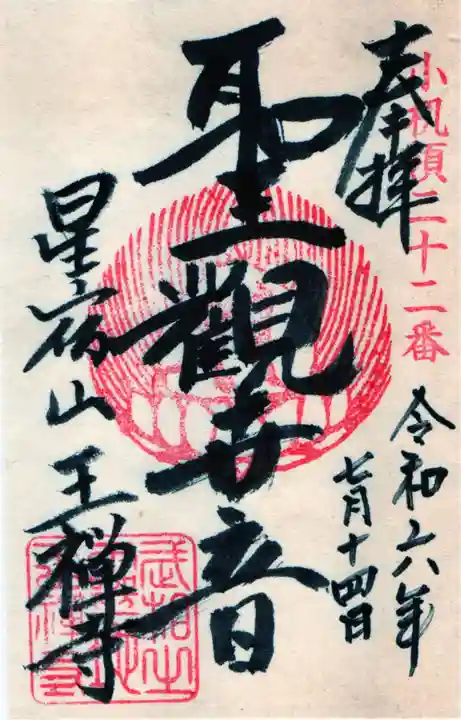 小机領二十二番
奉拝
令和六年
七月十四日
聖観世音
星宿山
王禅寺